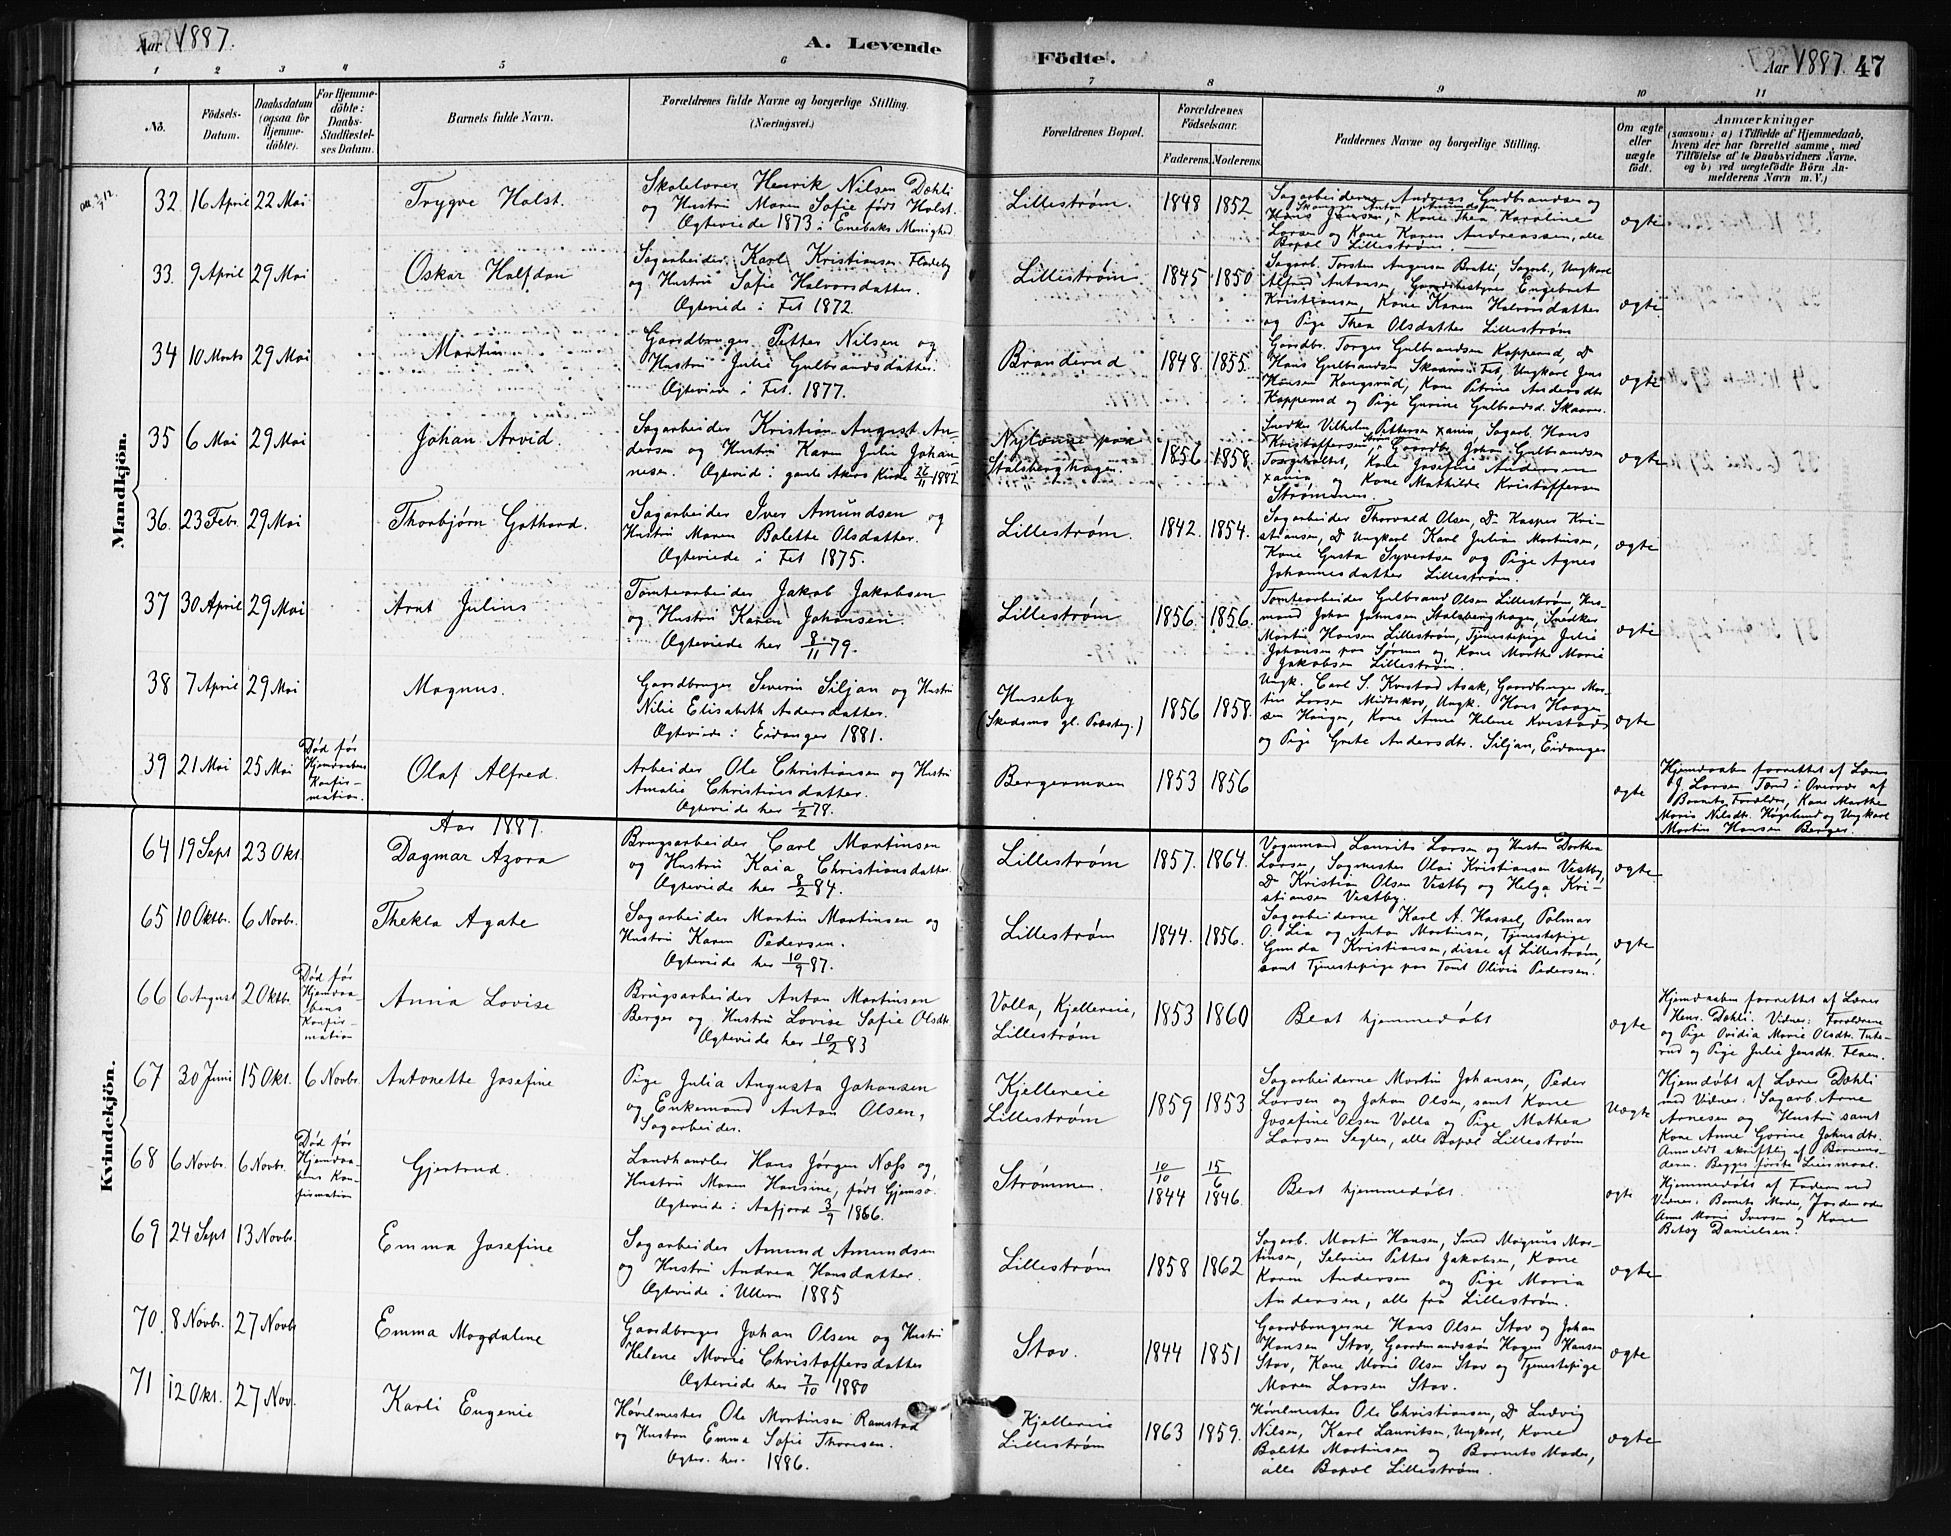 Aar 1887.
A. Levende
Födte.
Aar 1887. 47
1 2 3 4 5 6 7 8 9 10 11
No.
Födsels-
Datum.
Daabsdatum
(ogsaa for
Hjemme-
döbte).
For Hjemme-
döbte:
Daabs-
Stadfæstel-
ses Datum.
Barnets fulde Navn.
Forældrenes fulde Navne og borgerlige Stilling.
(Næringsvei.)
Forældrenes Bopæl.
Forældrenes
Födselsaar.
Faderens. Moderens.
Faddernes Navne og borgerlige Stilling.
Om ægte
eller
uægte
födt.
Anmærkninger
(saasom: a) i Tilfælde af Hjemmedaab,
hvem der har forrettet samme, med
Tilföielse af to Daabsvidners Navne.
og b) ved uægtefödte Börn An-
melderens Navn m. V.)
Mandkjön.
32 16 April 22 Mai
Trygve Holst.
Skolelærer Henrik Nilsen Døhli
og Hustru Maren Sofie født Holst.
Ægteviede 1873 i Enebaks Menighed.
Lillestrøm. 1848 1852
Sagarbeiderne Andreas Gudbrandsen og
Hans Jensen, Kone Thea Karoline
Larsen og Kone Karen Andreassen, alle
Bopæl Lillestrøm.
ægte
33. 9 April 29 Mai
Oskar Halfdan
Sagarbeider Karl Kristiansen Fladeby
og Hustru Sofie Halvorsdatter.
Ægteviede i Fet 1872.
Lillestrøm 1845 1850
Sagarb. Torsten Augensen Bratli, Sagarb., Ungkarl
Alfred Antonsen, Gaardbestyrer Engebret
Kristiansen, Kone Karen Halvorsdatter
og Pige Thea Olsdatter Lillestrøm
ægte
34 10 Marts 29 Mai
Martin
Gaardbruger Petter Nilsen og
Hustru Julie Gulbrandsdatter.
Ægteviede i Fet. 1877.
Branderud 1848. 1855.
Gaardbr. Torger Gulbrandsen Kopperud, Do
Hans Gulbrandsen Skaarer i Fet, Ungkarl Jens
Hansen Kongsrud, Kone Petrine Andersdtr
Kopperud og Pige Gurine Gulbrandsd. Skaarer.
ægte
35 6 Mai 29 Mai
Johan Arvid.
Sagarbeider Kristian August An-
dersen og Hustru Karen Julie Johan-
nesen. Ægteviede i gamle Akers Kirke 26/11 1882
Nylænne paa
Stalsberghagen. 1856 1858.
Snedker Vilhelm Pettersen Xania, Sagarb. Hans
Kristoffersen, Gaardbr. Johan Gulbrandsen
Torgerholtet, Kone Josefine Andersen
Xania og Kone Mathilde Kristoffersen
Strømmen.
ægte
36. 23 Febr. 29 Mai
Thorbjørn Gothard.
Sagarbeider Iver Amundsen og
Hustru Maren Bolette Olsdatter.
Ægteviede i Fet 1875.
Lillestrøm. 1842. 1854.
Sagarbeider Thorvald Olsen, Do Kasper Kri-
stiansen, Do Ungkarl Karl Julius Martinsen,
Kone Gusta Syvertsen og Pige Agnes
Johannesdatter Lillestrøm.
ægte
37 30 April 29 Mai
Arnt Julius
Tomtearbeider Jakob Jakobsen
og Hustru Karen Johansen.
Ægteviede her 8/11 79.
Lillestrøm 1856. 1856.
Tomtearbeider Gulbrand Olsen Lillestrøm, Hus-
mand Johan Johnsen Stalsberghagen, Snedker
Martin Hansen Lillestrøm, Tjenestepige Julie
Johansen paa Sørum og Kone Marthe Marie
Jakobsen Lillestrøm.
ægte
38 7 April 29 Mai
Magnus.
Gaardbruger Severin Siljan og Hustru
Nilie Elisabeth Andersdatter.
Ægteviede i Eidanger 1881.
Huseby
(Skedsmo gl. Præsteg.) 1856 1858.
Ungk. Carl S. Kverstad Asak, Gaardbruger Mar-
tin Larsen Midtskov, Ungk. Hans Haagen-
sen Hougen, Kone Anne Helene Kverstad
og Pige Grete Andersdtr. Siljan, Eidanger
ægte
39 21 Mai 25 Mai
Død før
Hjemdaabens
Konfir-
mation.
Olaf Alfred.
Arbeider Ole Christiansen og Hustru
Amalie Christiansdatter.
Ægteviede her 1/2 78.
Bergermoen 1853 1856
ægte
Hjemdaaben forrettet af Lærer
J. Larsen Tærud i Overvær af
Barnets Forældre, Kone Marthe
Marie Nilsdtr. Høgelund og Ungkarl
Martin Hansen Berger.
Kvindekjön.
Aar 1887.
64 19 Sept 23 Okt.
Dagmar Azora
Brugsarbeider Carl Martinsen
og Hustru Kaia Christiansdatter.
Ægteviede her 8/2 84.
Lillestrøm 1857. 1864.
Vognmand Laurits Larsen og Hustru Dorthea
Larsen, Sagmester Olai Kristiansen Vestby,
Do Kristian Olsen Vestby og Helga Kri-
stiansen Vestby.
ægte.
65 10 Oktbr. 6 Novbr.
Thekla Agate
Sagarbeider Martin Martinsen og
Hustru Karen Pedersen.
Ægteviede her 10/9 87.
Lillestrøm 1844. 1856.
Sagarbeiderne Karl A. Hassel, Palmar
O. Lia og Anton Martinsen, Tjenestepige
Gunda Kristiansen, disse af Lillestrøm,
samt Tjenestepige paa Tomt Olivia Pedersen.
ægte
66 6 August 2 Oktbr.
Død før
Hjemdaa-
bens
Konfir-
mation
Anna Lovise
Brugsarbeider Anton Martinsen
Berger og Hustru Lovise Sofie Olsdtr
Ægteviede her 10/2 83
Volla, Kjellereie,
Lillestrøm 1853 1860
Blot hjemmedøbt
ægte
Hjemdaaben forrettet af Lærer
Henr. Døhli. Vidner: Forældrene
og Pige Ovidia Marie Olsdtr. Tuts-
rud og Pige Julie Jensdtr. Flaen.
67 30 Juni 15 Okt. 6 Novbr.
Antonette Josefine
Pige Julia Augusta Johansen
og Enkemand Anton Olsen,
Sagarbeider.
Kjellereie
Lillestrøm 1859 1853
Sagarbeiderne Martin Johansen, Peder
Larsen og Johan Olsen, samt Kone
Josefine Olsen Volla og Pige Mathea
Larsen Seglen, alle Bopæl Lillestrøm
Uægte
Hjemdøbt af Lærer Døhli
med Vidner: Sagarb. Arne
Arnesen og Hustru samt
Kone Anne Gorine Johnsdtr.
Anmeldt skriftlig af Barnemo-
deren. Begges første Leiermaal.
68 6 Novbr. 6 Novbr.
Død før
Hjemdaa-
bens Kon-
firmation
Gjertrud.
Landhandler Hans Jørgen Næss og
Hustru Maren Hansine, født Gjemsø.
Ægteviede i Aafjord 3/9 1866.
Strømmen. 10/10 1844 15/6 1846.
Blot hjemmedøbt.
ægte
Hjemmedøbt af Faderen med
Vidner: Barnets Moder, Jordemoder
Anne Marie Iversen og Kone
Betsy Danielsen.
69 24 Sept 13 Novbr.
Emma Josefine
Sagarbeider Amund Amundsen
og Hustru Andrea Hansdatter.
Ægteviede i Ullern 1885
Lillestrøm 1858 1862
Sagarb. Martin Hansen, Smed Magnus Mar-
tinsen, Selveier Petter Jakobsen, Kone
Karen Andersen og Pige Maria
Andersen, alle fra Lillestrøm.
ægte
70. 8 Novbr. 27 Novbr
Emma Magdalene
Gaardbruger Johan Olsen og Hustru
Helene Marie Christoffersdatter
Ægteviede her 7/10 1880
Stav. 1844 1851
Gaardbrugerne Hans Olsen Stav og Johan
Hansen Stav, Gaardmandssøn Hagen Hansen
Stav, Kone Marie Olsen Stav og Tjenestepige
Maren Larsen Stav.
ægte
71 12 Okt. 27 Nov.
Karli Eugenie
Høvlmester Ole Martinsen Ramstad
og Hustru Emma Sofie Thoresen.
Ægtev. her 1886.
Kjellereie
Lillestrøm 1863 1859.
Høvlmester Ole Christiansen, Do Ludvig
Nilsen, Karl Lauritsen, Ungkarl, Kone
Bolette Martinsen og Barnets Moder,
alle Bopæl Lillestrøm.
ægte